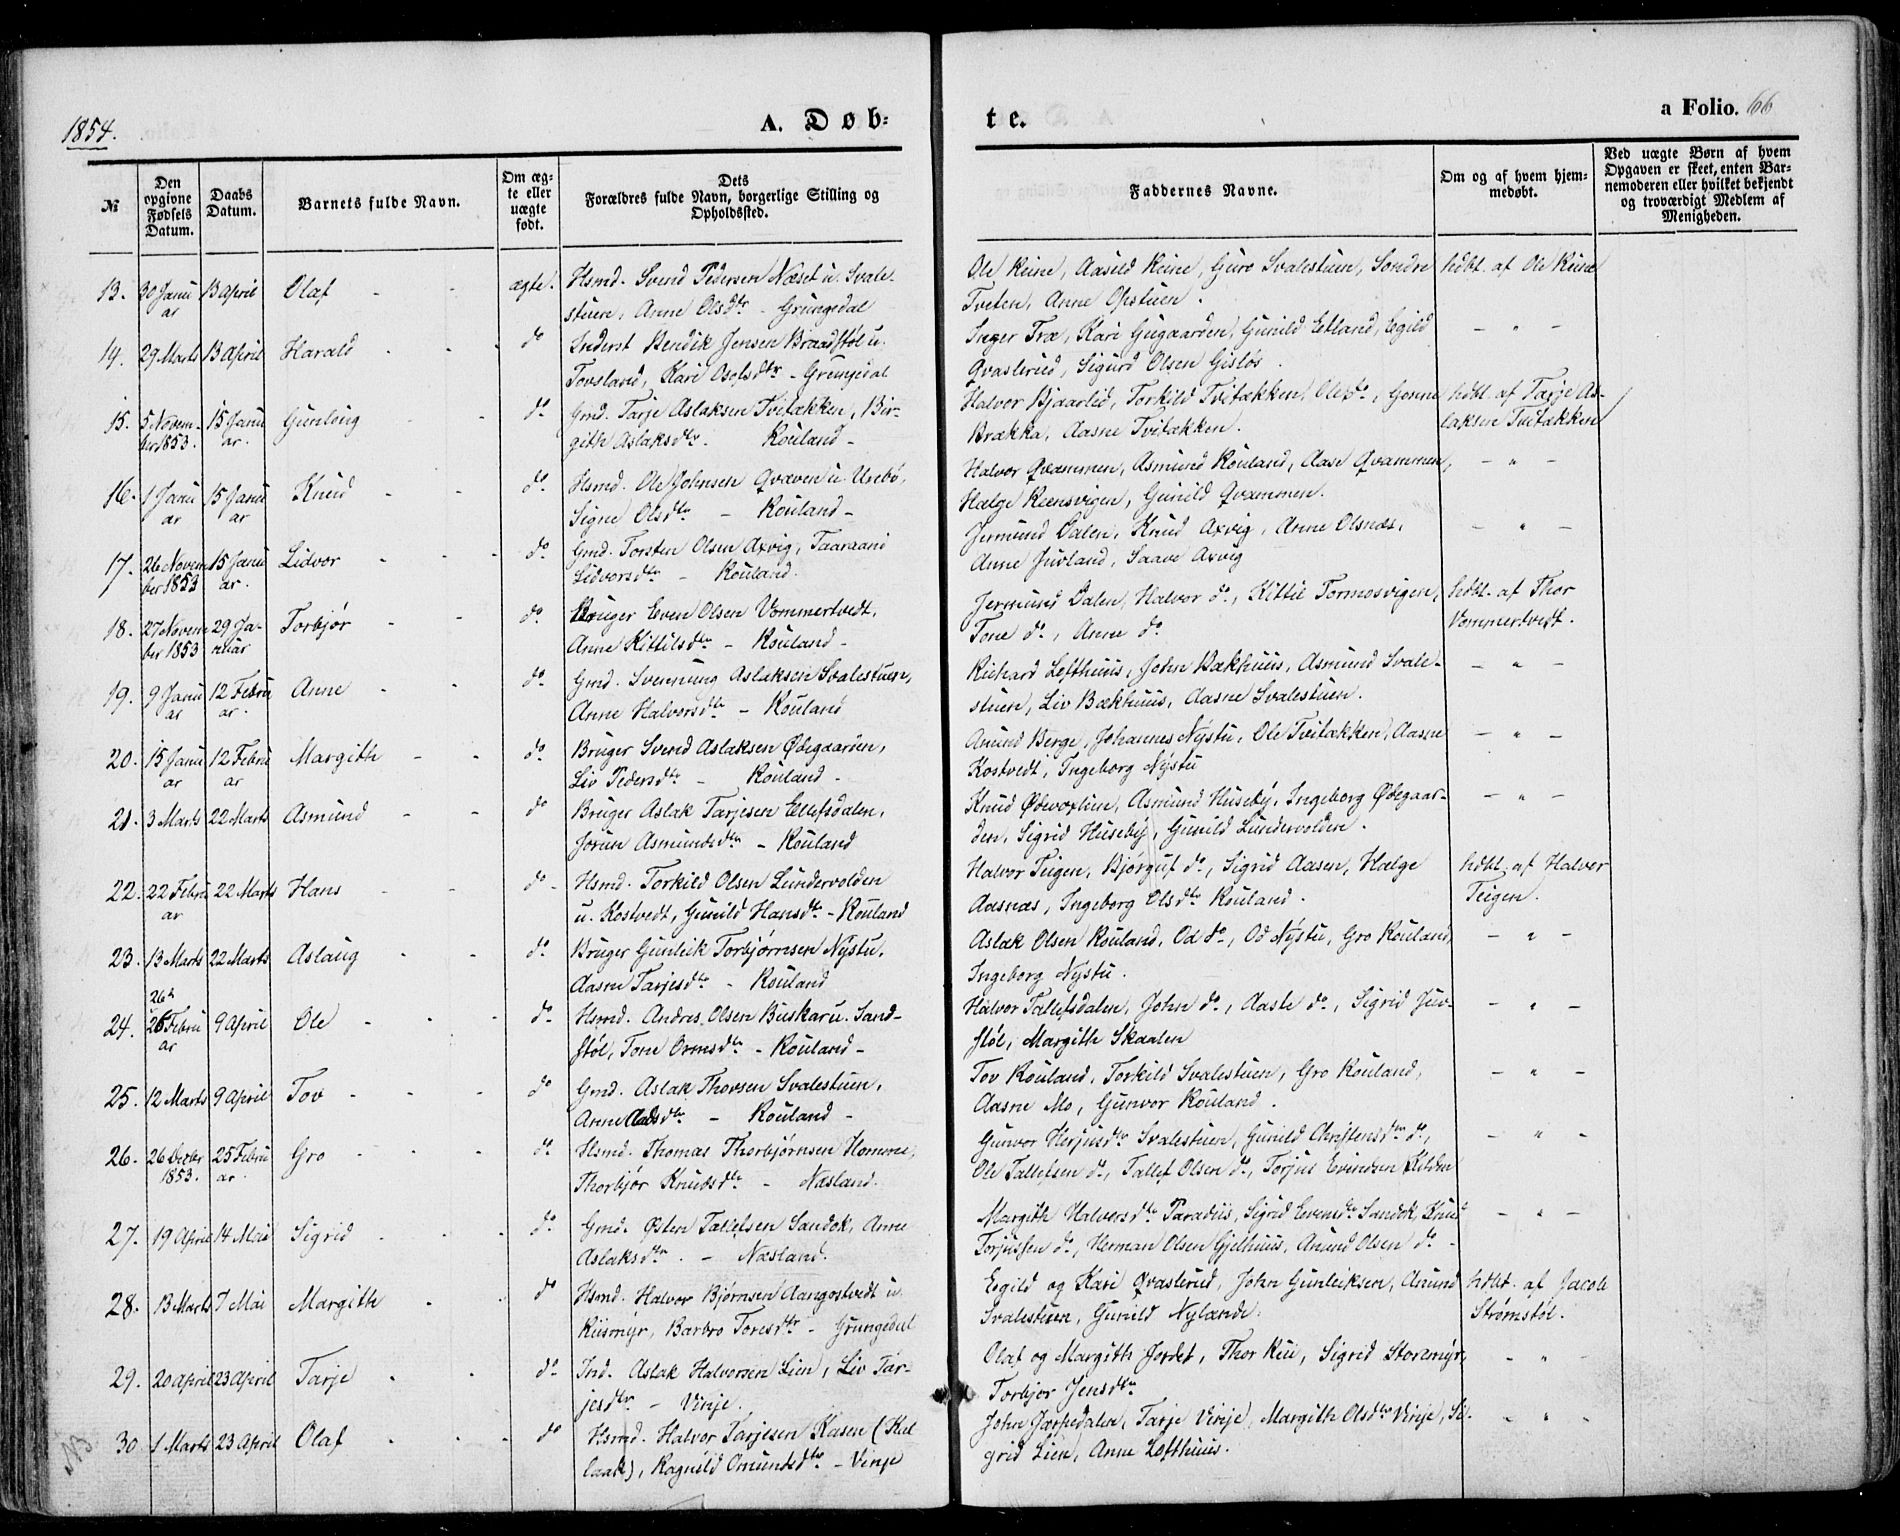 1854.
A. Døb-
te.
a Folio. 66
№
Den opgivne Fødsels Datum.
Daabs Datum.
Barnets fulde Navn.
Om ægte eller uægte født.
Dets Forældres fulde Navn, borgerlige Stilling og Opholdssted.
Faddernes Navne.
Om og af hvem hjemmedøbt.
Ved uægte Børn af hvem Opgaven er skeet, enten Barnemoderen eller hvilket bekjendt og troværdigt Medlem af Menigheden.
13. 30 Januar 13 April Olaf - - ægte. Hsmd. Svend Pedersen Næset u. Svale-
stuen, Anne Olsdtr - Grungedal
Ole Kiine, Aasild Kiine, Guro Svalestuen, Sondre
Tveten, Anne Opstuen.
hdbt. af Ole Kiine
14. 29 Marts 13 April Harald - - - do Inderst Bendik Jensen Braadstøl u.
Tovsland, Kari Osolsdtr - Grungedal
Inger Træ, Kari Gugaarden, Gunild Edland, Egild
Qvaslerud, Sigurd Olsen Gisløs.
- " -
15. 5 November 1853. 15 Januar. Gunloug - - do. Gmd. Tarje Aslaksen Tvitækken, Bir-
gith Aslaksdtr. Rouland -
Halvor Bjaarlid, Torkild Tvitækken, Ole do, Gonne
Brækka, Aasne Tvitækken.
hdbt. af Tarje As-
laksen Tvitækken
16. 1 Januar 15 Januar Knud - - do. Hsmd. Ole Johnsen Qvæven u. Urebø,
Signe Olsdtr - Rouland -
Halvor Qvammen, Asmund Rouland, Aase Qvammen,
Hælge Rænsvigen, Gunild Qvammen.
- " -
17. 26 November 1853 15 Januar. Lidvor - - - do. Gmd. Torsten Olsen Axvig, Taaraand
Lidvorsdtr - Rouland.
Jermund Dalen, Knud Axvig, Anne Olsnæs,
Anne Juvland, Saave Axvig
- " -
18. 27 November 1853 29 Januar Torbjør - - do. Bruger Even Olsen Vommertvedt,
Anne Kittilsdtr - Rouland -
Jermund Dalen, Halvor do, Kittil Tormosvigen,
Tone do, Anne do
hdbt. af Thor
Vommertvedt.
19. 9 Januar 12 Februar. Anne - - do. Gmd. Svennung Aslaksen Svalestuen,
Anne Halvorsdtr - Rouland
Richard Lofthuus, John Bækhuus, Asmund Svale-
stuen, Liv Bækhuus, Aasne Svalestuen.
- " -
20. 15 Januar 12 Februar Margith - - do Bruger Svend Aslaksen Ødegaarden,
Liv Pedersdtr - Rouland -
Amund Berge, Johannes Nystu, Ole Tvitækken, Aasne
Kostvedt, Ingeborg Nystu
- " -
21. 3 Marts 22 Marts Asmund - - do Bruger Aslak Tarjesen Ellefsdalen,
Jorun Asmundsdtr - Rouland
Knud Ødevoxlien, Asmund Huseby, Ingeborg Ødegaar-
den, Sigrid Huseby, Gunild Lundervolden.
- " -
22. 22 Februar 22 Marts Hans - - do - Hsmd. Torkild Olsen Lundervolden
u. Kostvedt, Gunild Hansdtr - Rouland
Halvor Teigen, Bjørguf do, Sigrid Aasen, Hælge
Aasnæs, Ingeborg Olsdtr Rouland.
hdbt. af Halvor
Teigen.
23. 13 Marts 22 Marts Aslaug - - do. Bruger Gunleik Torbjørnsen Nystu,
Aasne Tarjesdtr - Rouland
Aslak Olsen Rouland, Od do, Od Nystu, Gro Rouland,
Ingeborg Nystu.
- " -
24. 26de Februar 9 April Ole - - - do. Hsmd. Andres Olsen Buskar u. Sand-
støl, Tone Ormsdtr - Rouland -
Halvor Tallefsdalen, John do, Aaste do, Sigrid Juv-
støl, Margith Skaalen
- " -
25. 12 Marts 9 April Tov - - - do Gmd. Aslak Thovsen Svalestuen,
Anne Aadsdtr - Rouland -
Tov Rouland, Torkild Svalestuen, Gro Rouland,
Aasne Mo, Gunvor Rouland.
- " -
26. 26 Decbr 1853. 25 Februar. Gro - - - do. Hsmd. Thomas Thorbjørnsen Homme,
Thorbjør Knudsdtr - Næsland.
Gunvor Herjusdtr Svalestuen, Gunild Christensdtr do,
Ole Tallefsen do, Tallef Olsen do, Torjus Evindsen Kilden
- " -
27. 19 April 14 Mai Sigrid - - - do. Gmd. Østen Tallefsen Sandok, Anne
Aslaksdtr. - Næsland.
Margith Halvorsdtr Paradiis, Sigrid Evensdtr Sandok, Knud
Torjussen do, Herman Olsen Gjelhuus, Anund Olsen do -
- " -
28. 13 Marts 7 Mai Margith - - do Hsmd. Halvor Bjørnsen Aangostvedt u.
Riismyr, Barbro Toresdtr - Grungedal
Egild og Kari Qvaslerud, John Gunleiksen, Anund
Svalestuen, Gunild Nylande.
hdbt. af Jacob
Strømstøl.
29. 20 April 23 April Tarje - - do. Ind. Aslak Halvorsen Lien, Liv Tar-
jesdtr - Vinje.
Olaf og Margith Jordet, Thor Rui, Sigrid Storemyr,
Torbjør Jensdtr
- " -
NB 30 1 Marts 23 April Olaf - - do Hsmd. Halvor Tarjesen Kasen (Kal
laak), Ragnild Omundsdtr - Vinje
John Jarpedalen, Tarje Vinje, Margith Olsdtr Vinje, Si-
grid Lien, Anne Lofthuus.
- " -